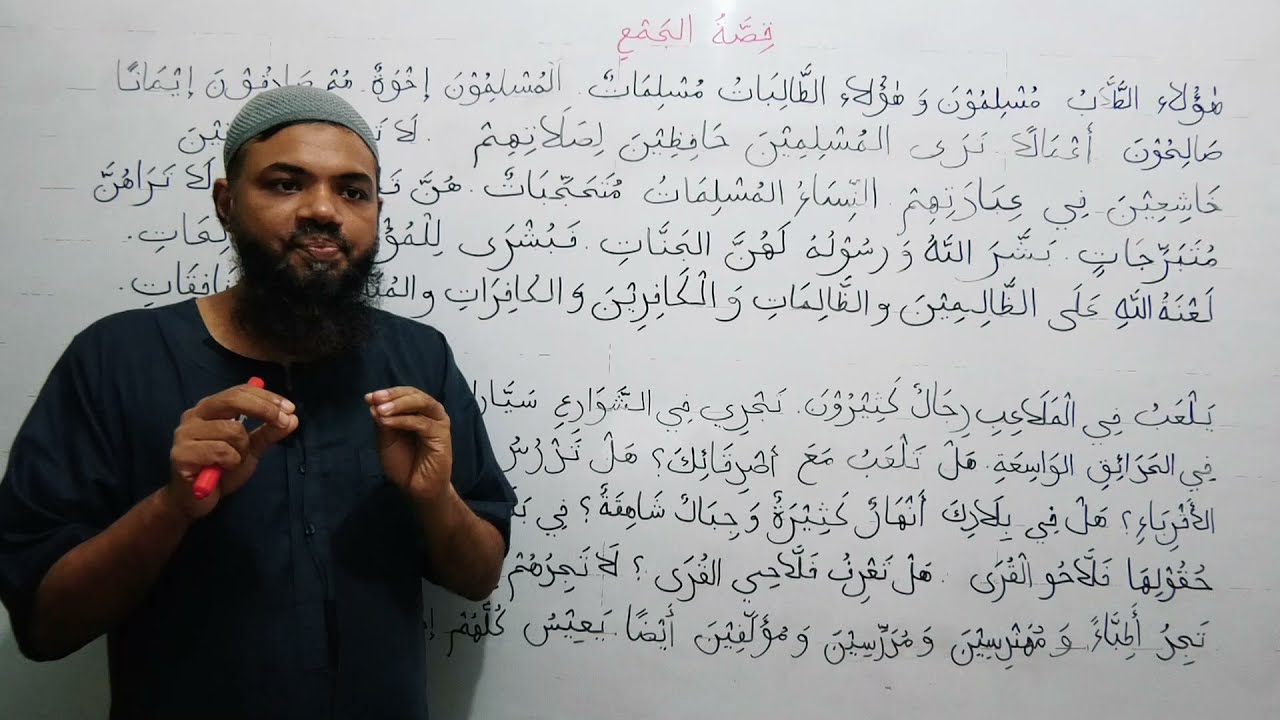 قِصَّةُ الجَمْعِ
هٰؤُلَاءِ الطُّلَّابُ مُسْلِمُوْنَ وَ هٰؤُلَاءِ الطَّالِبَاتُ مُسْلِمَاتٌ. اَلْمُسْلِمُوْنَ إِخْوَةٌ. هُمْ صَادِقُوْنَ إِيْمَانًا
صَالِحُوْنَ أَعْمَالًا. نَرَى المُسْلِمِيْنَ حَافِظِيْنَ لِصَلَاتِهِمْ. لَا
خَاشِعِيْنَ فِي عِبَادَتِهِمْ. النِّسَاءُ المُسْلِمَاتُ مُتَحَجِّبَاتٌ. هُنَّ لَا نَرَاهُنَّ
مُتَبَرِّجَاتٍ. بَشَّرَ اللّٰهُ وَ رَسُوْلُهُ لَهُنَّ الجَنَّاتِ. فَبُشْرَى
لَعْنَةُ اللّٰهِ عَلَى الظَّالِمِيْنَ والظَّالِمَاتِ وَ الْكَافِرِيْنَ وَالكَافِرَاتِ
يَلْعَبُ فِي الْمَلَاعِبِ رِجَالٌ كَثِيْرُوْنَ. تَجْرِي فِي الشَّوَارِعِ
فِي الحَدَائِقِ الوَاسِعَةِ. هَلْ تَلْعَبُ مَعَ أَصْدِقَائِكَ؟ هَلْ تَزُوْرُ
الأَقْرِبَاءِ؟ هَلْ فِي بِلَادِكَ أَنْهَارٌ كَثِيْرَةٌ وَ جِبَالٌ شَاهِقَةٌ؟ فِي
حُقُوْلِهَا فَلَّاحُو الْقُرَى. هَلْ تَعْرِفُ فَلَّاحِي القُرَى؟ لَا تَجِدُهُمْ
تَجِدُ أَطِبَّاءً وَ مُهَنْدِسِيْنَ وَ مُدَرِّسِيْنَ وَ مُؤَلِّفِيْنَ أَيْضًا يَعِيْشُ كُلُّهُمْ